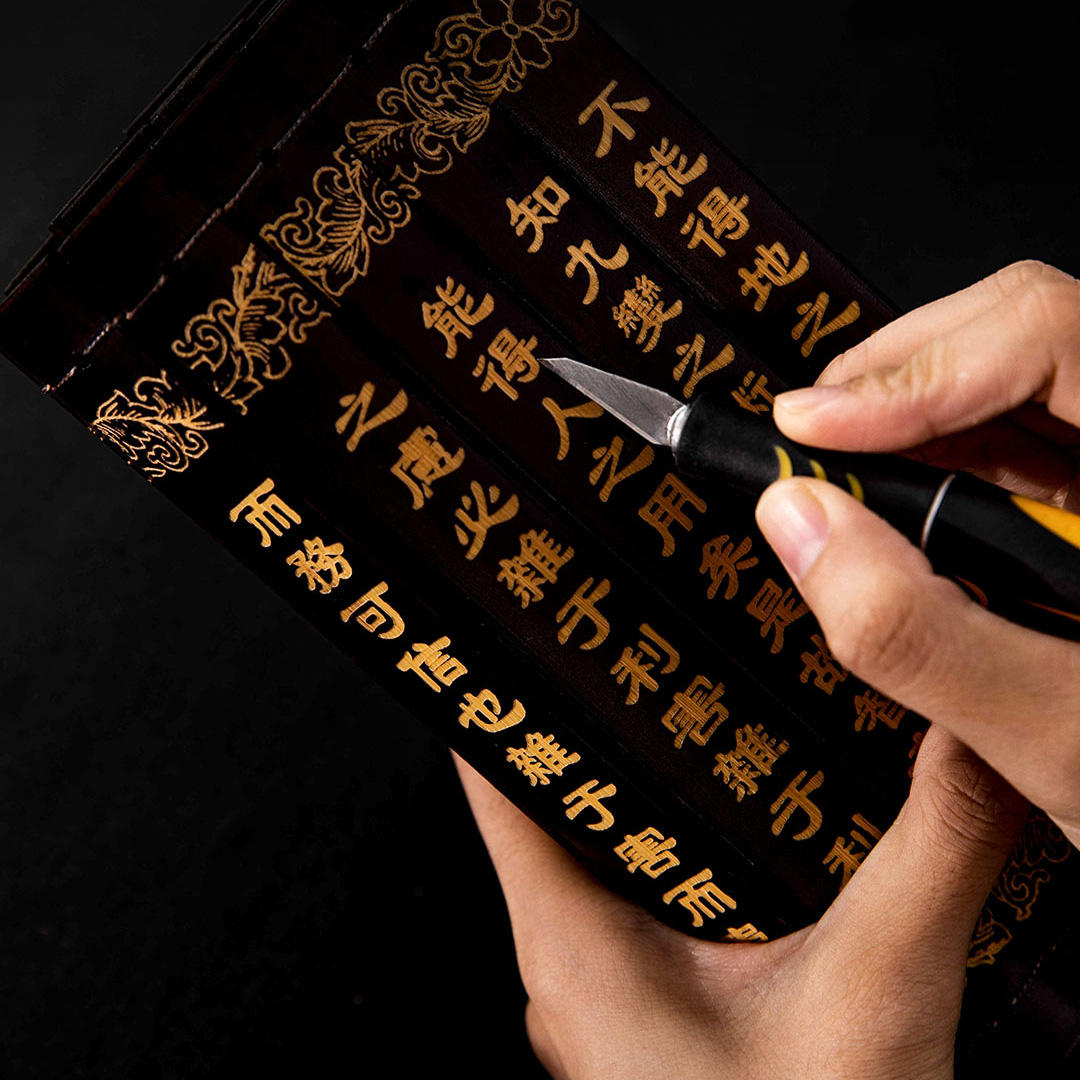 不能得地之
知九變之
能得人之用矣是故智
之慮必雜于利害雜于利
而務可信也雜于害而